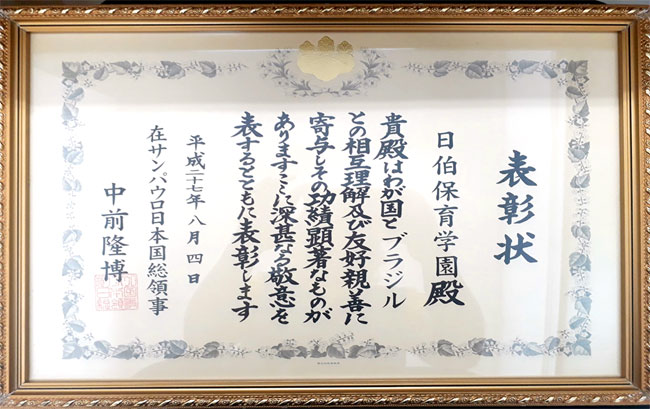 表彰状
日伯保育学園殿
貴殿はわが国とブラジル
との相互理解及び友好親善に
寄与しその功績顕著なものが
ありますここに深甚なる敬意を
表するとともに表彰します
平成二十七年八月四日
在サンパウロ日本国総領事
中前隆博